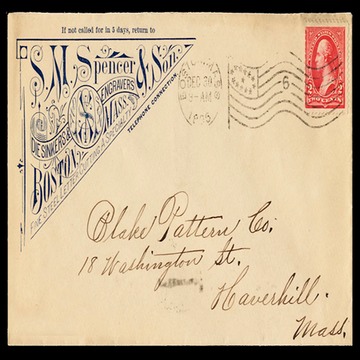 If not called for in 5 days, return to
S. M. Spencer & Son.
ENGRAVERS
DIE SINKERS &
MASS.
BOSTON
TELEPHONE CONNECTION.
DEC 30
9-AM
1896
6
2
2
Blake Pattern Co.
18 Washington St.
Haverhill.
Mass.